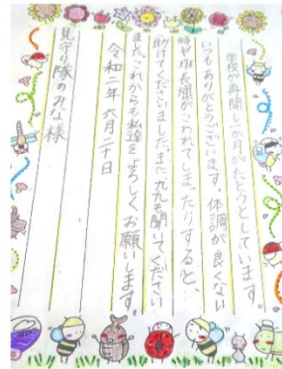 学校が再開し一か月がたとうとしています。
いつもありがとうございます。体調が良くない
時や班長旗がこわれてしまったりすると、
助けてくださいました。また、九九を聞いてください
ました。これからも私達をよろしくお願いします。
令和二年六月二十日
見守り隊のみな様